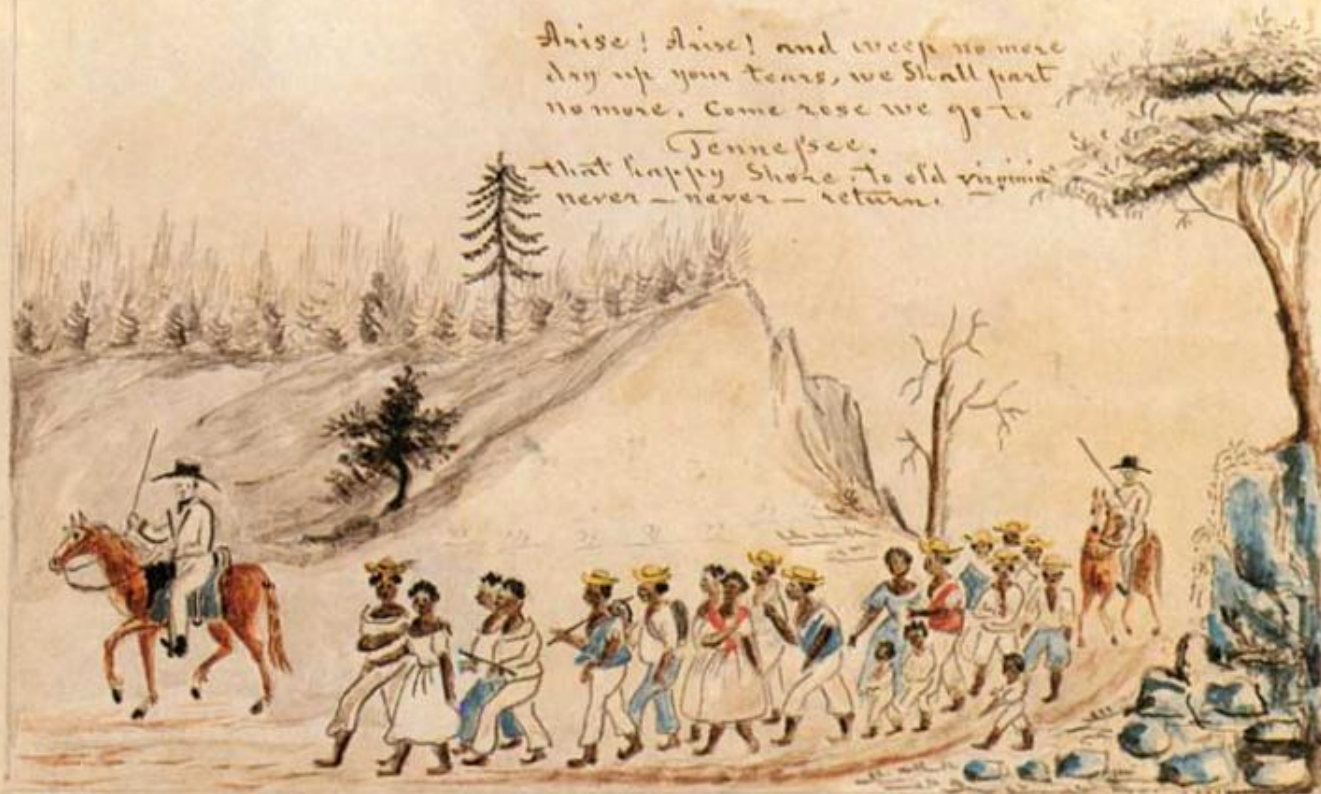 Arise! Arise! and weep no more
dry up your tears, we Shall part
no more. Come rose we go to
Tennessee,
that happy Shore, to old virginia
never – never – return.